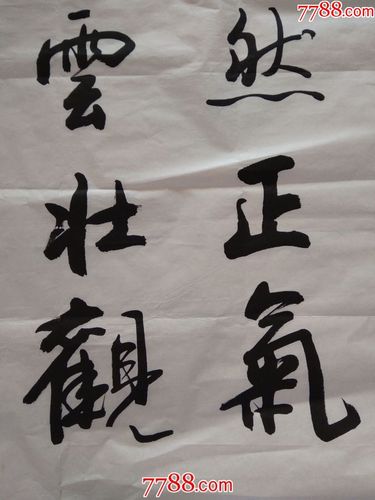 7788.com
然正氣
雲壯觀
7788.com